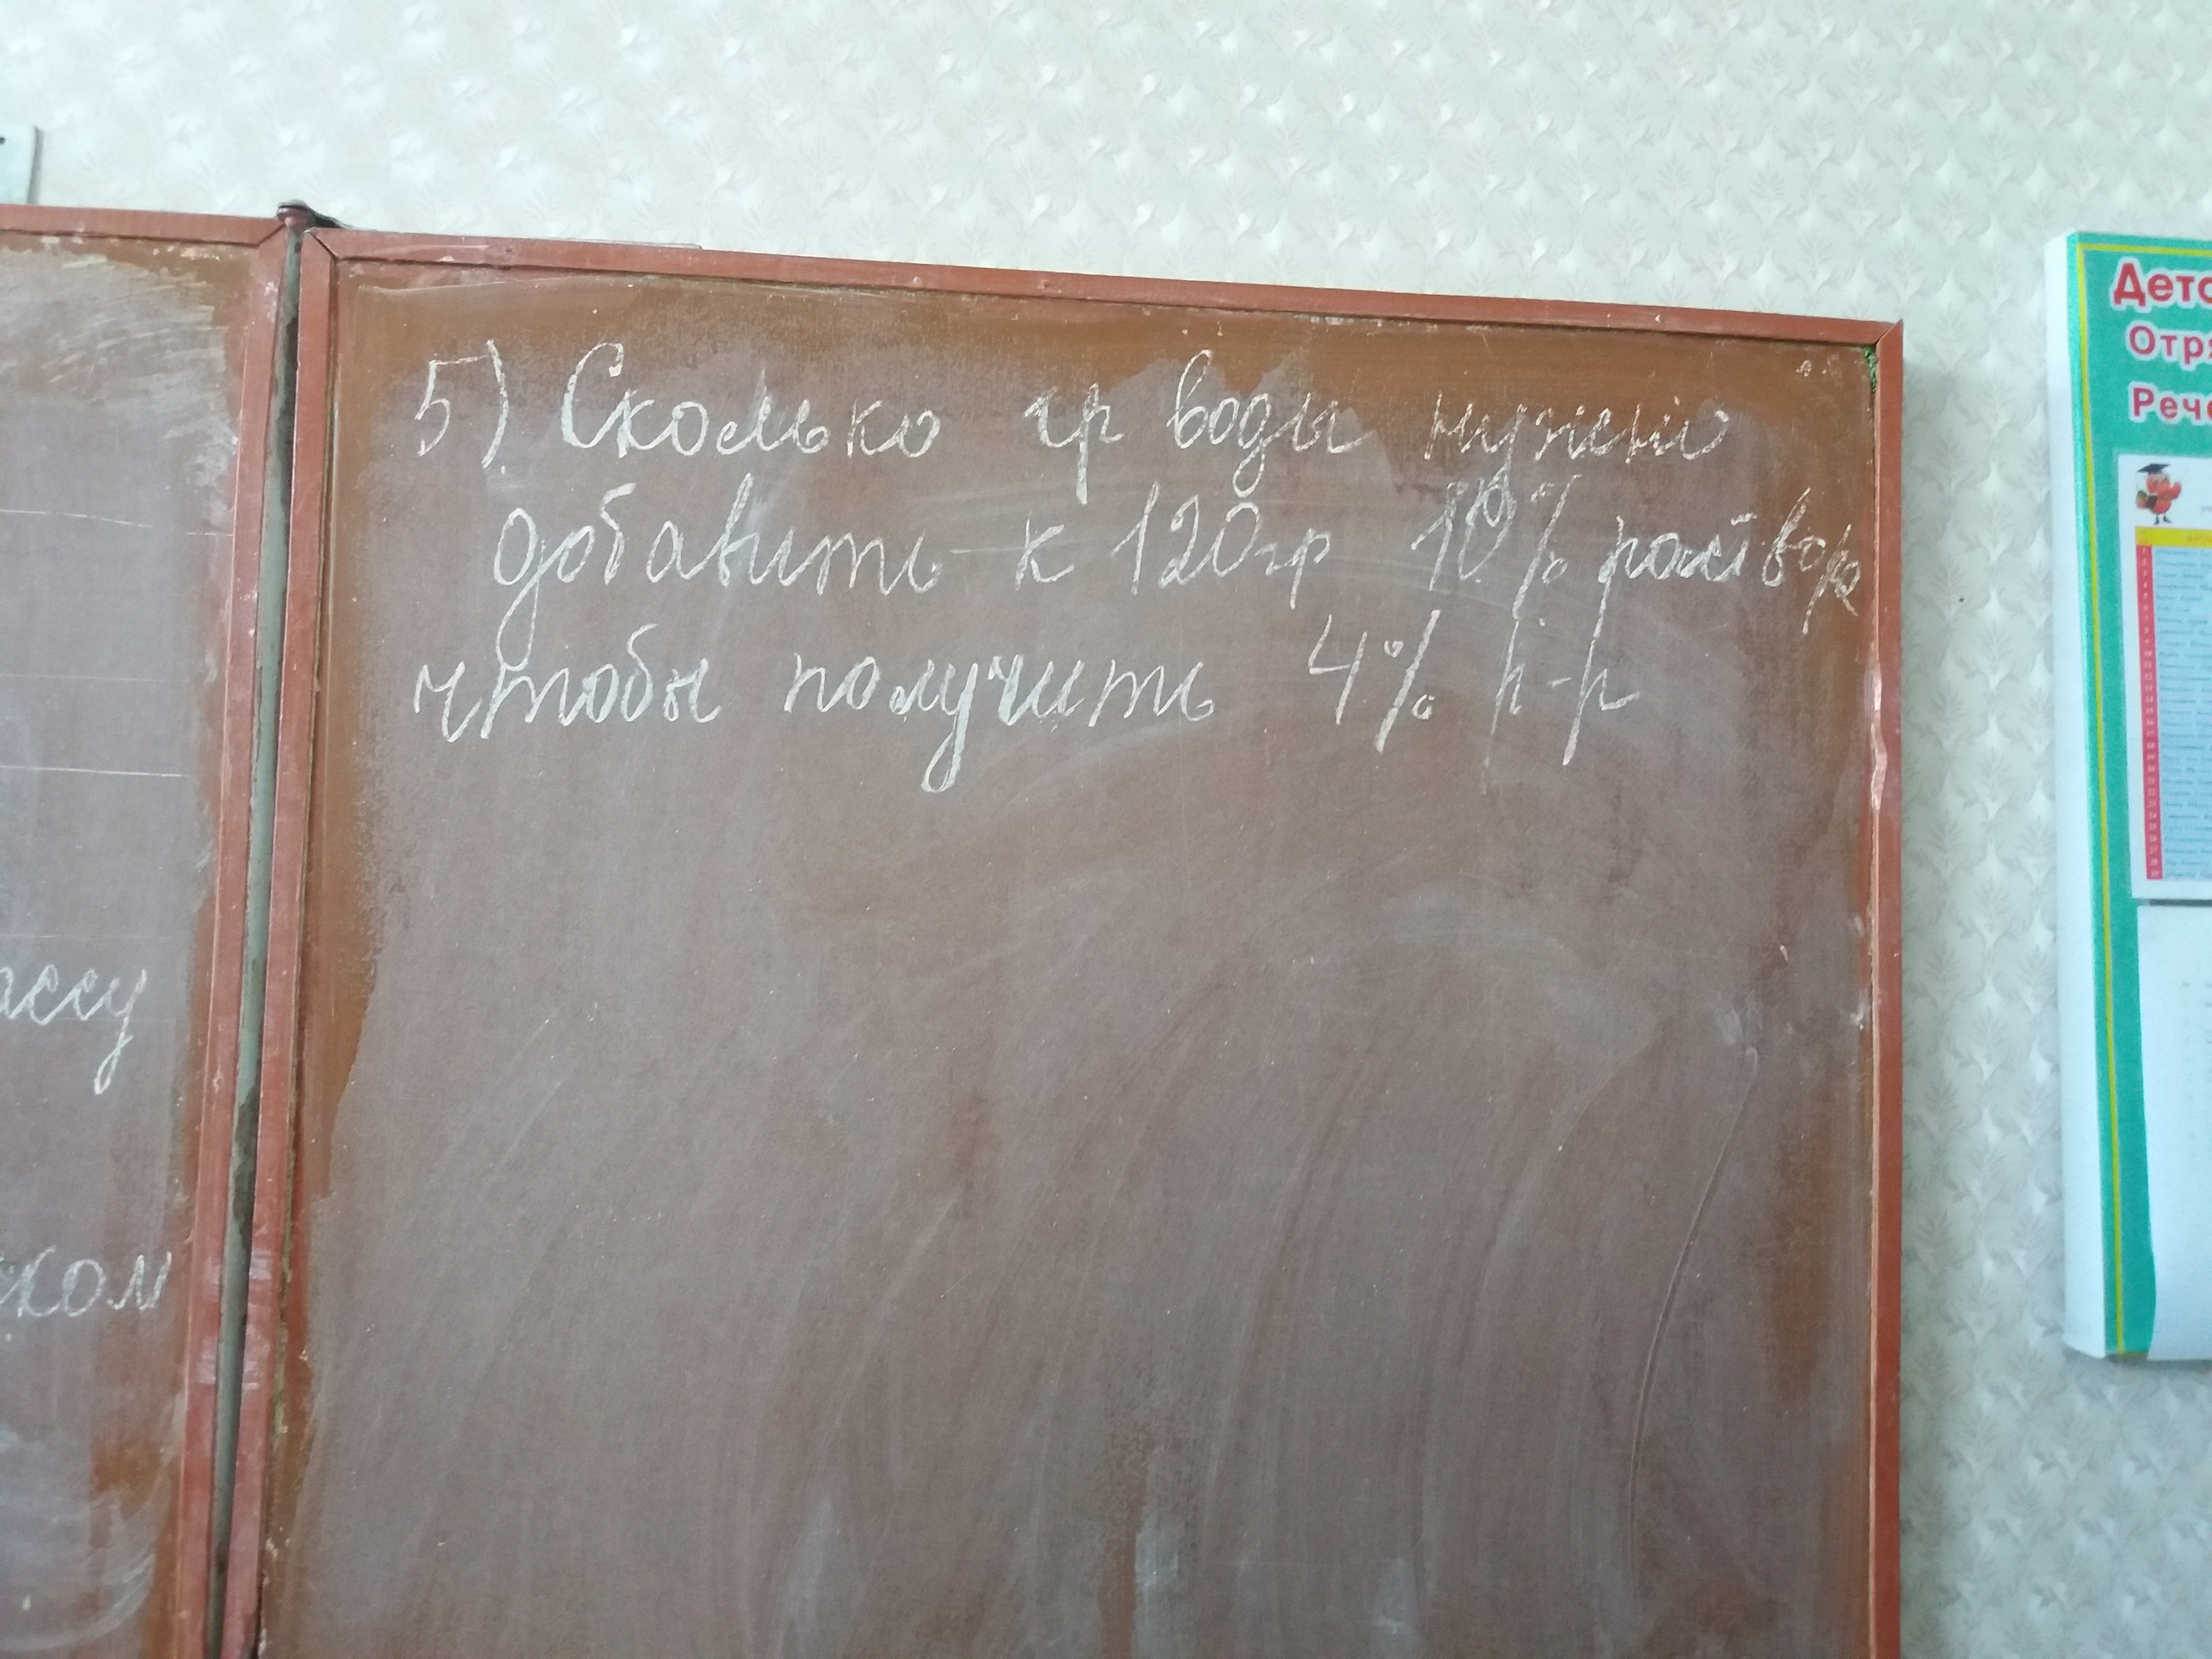 5) Сколько гр воды нужно
добавить к 120гр 10% раствора
чтобы получить 4% р-р
ассу
ком
Дето
Отря
Рече